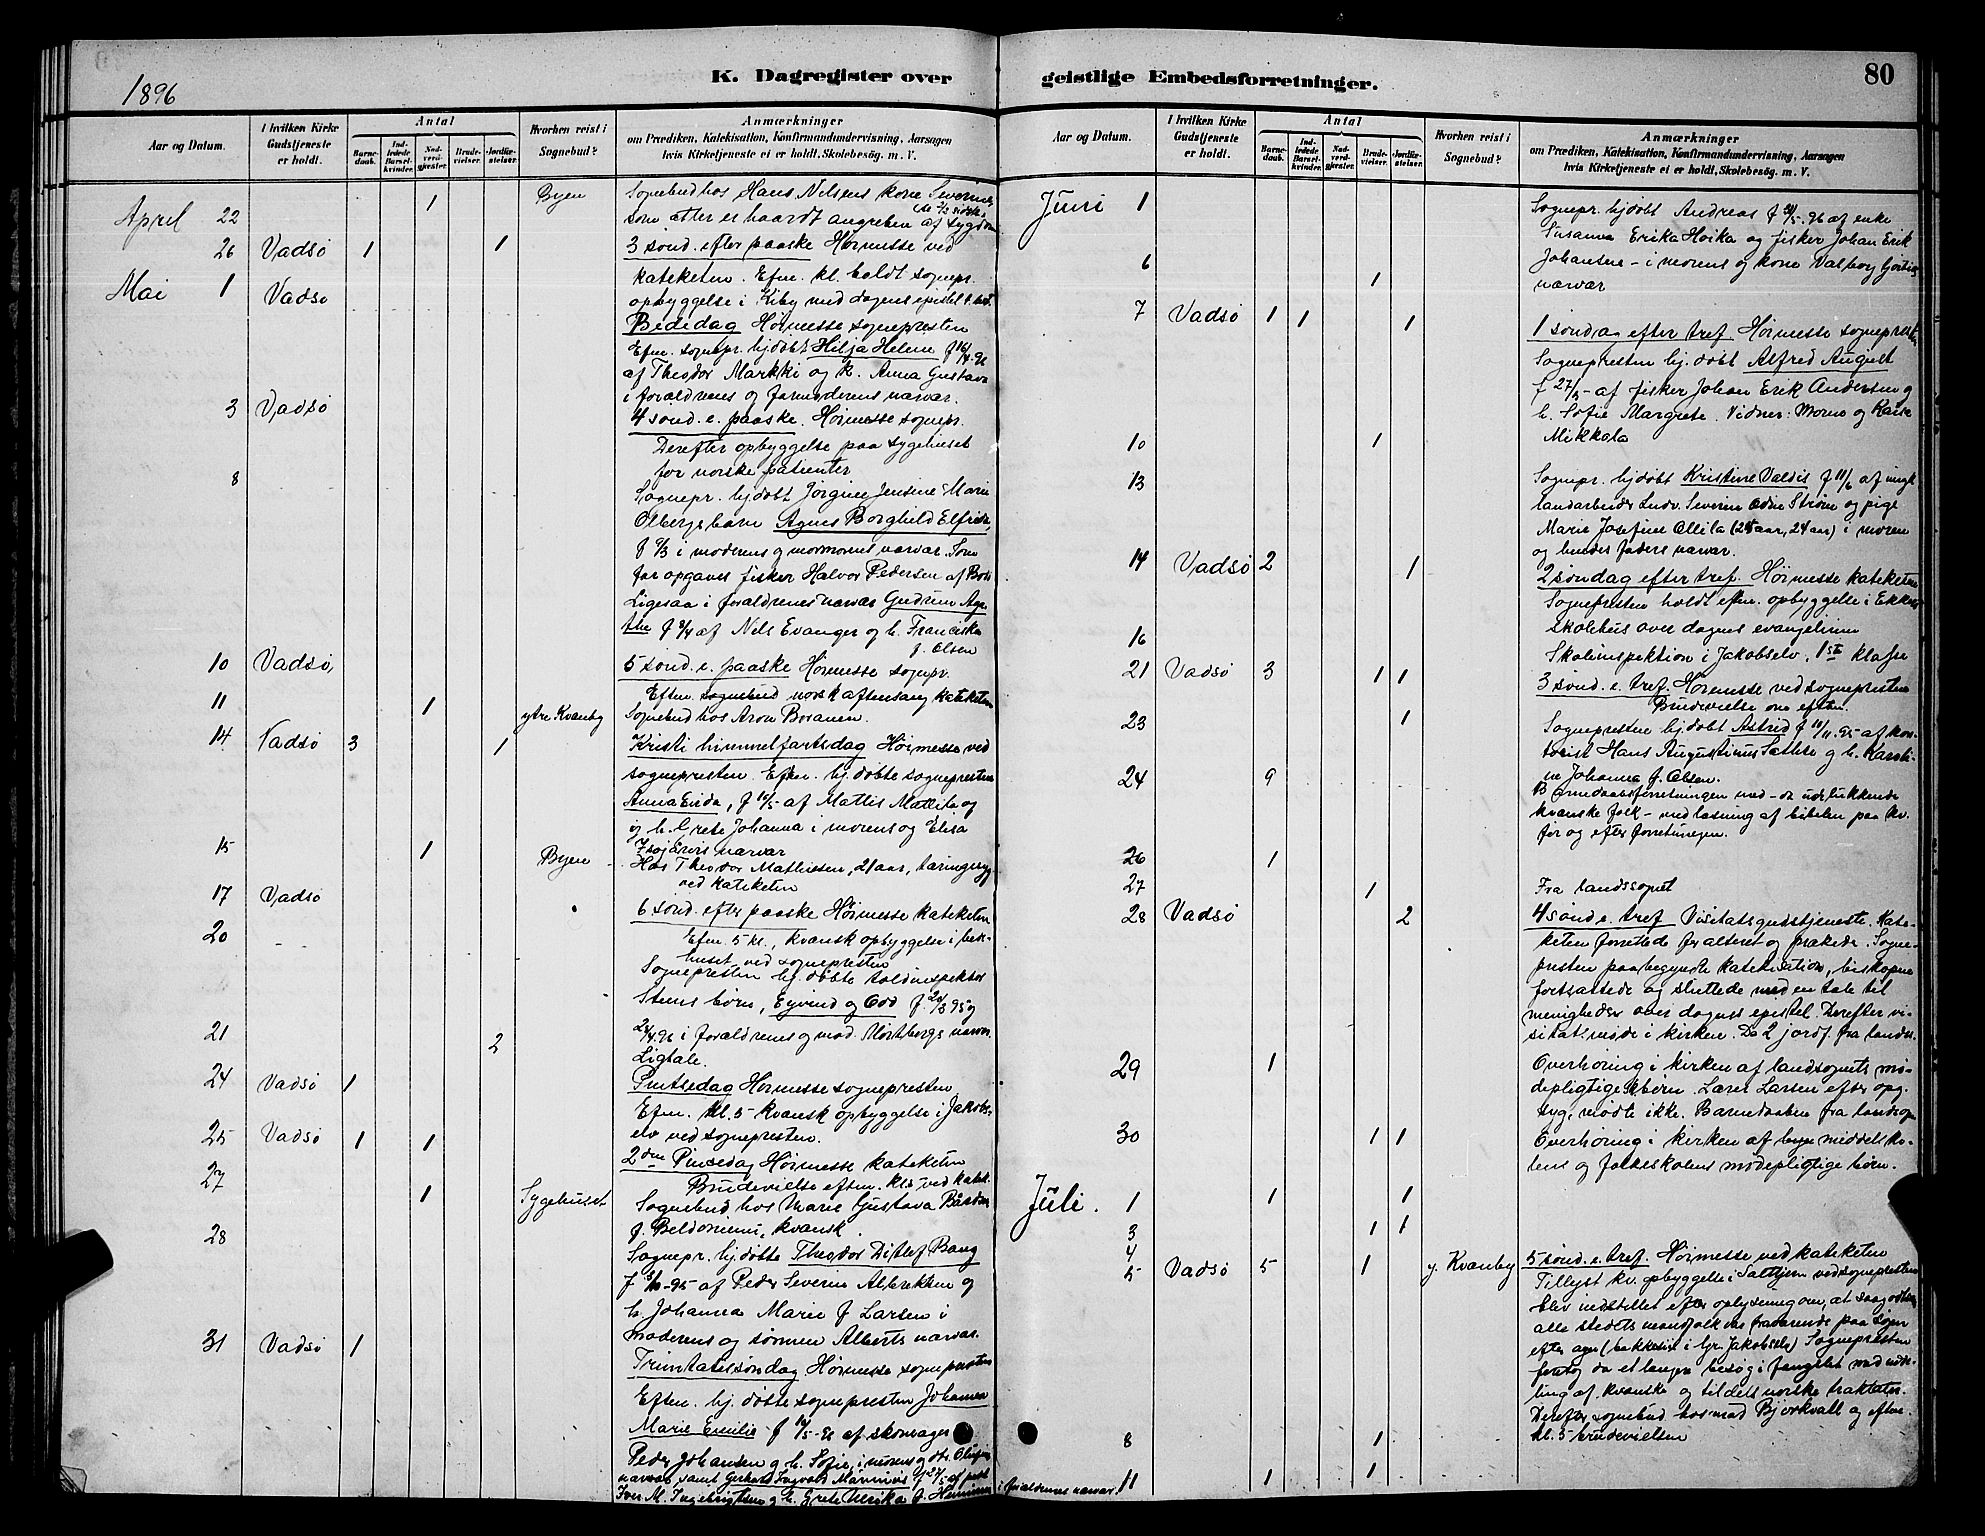 K. Dagregister over
1896
Aar og Datum.
I hvilken Kirke Gudstjeneste er holdt.
Antal
Barnedaab.
Indledede Barselkvinder.
Nadverdgjester.
Brudevielser.
Jordfæstelser.
Hvorhen reist i Sognebud?
Anmærkninger
om Prædiken, Katekisation, Konfirmandundervisning, Aarsagen
hvis Kirketjeneste ei er holdt, Skolebesøg. m. V.
April 22 1 Byen Sognebud hos Hans Nilsens kone
som atter er haardt angreben af sygdom
26 Vadsø 1 1 3 sönd. efter paaske Høimesse ved
kateketen. Efm. kl. holdt sognepr.
opbyggelse i Kiby med dagens epistel
Mai 1 Vadsø
Bededag Høimesse sognepresten
Efm. sognepr. hj.døbt Hilja Helene f 16/4 96
af Theodor Markki og k. Anna Gustava
i forældrenes og farmoderens nærvær.
3 Vadsø 4 sönd. e. paaske. Høimesse sognepr.
Derefter opbyggelse paa sygehuset
for norske patienter
8 Sognepr. hj.døbt Jørgine Jensine Marie
Olbergs barn Agnes Borghild Elfrida,
i moderens og mormorens nærvær. Som
far opgaves fisker Halvor Pedersen af
Ligesaa i forældrenes nærvær Gudrun Aga-
the f af Nils Evanger og h. Franciska
f. Olsen
10 Vadsø, 5 sönd. e. paaske Høimesse sognepr.
Eftm. sognebud norsk aftensang kateketen
11 1 ytre Kvanby Sognebud hos Aron Boranen.
14 Vadsø 3 1 Kristi himmelfartsdag Høimesse ved
sognepresten. Efm. hj.døbte sognepresten
Anna , f 10/5 af Mattis Mattila og
og h. Grete Johanna i morens og Elisa
nærvær
15 1 Byen Hos Theodor Mathisen, 21 aar, tæringssyg
ved kateketen
17 Vadsø 6 sönd. efter paaske Høimesse kateketen
Efm. 5 kl., kvænsk opbyggelse i bede-
huset ved sognepresten
20 Sognepresten hj.døbte toldinspektør
Stens børn, Eyvind og Odd f. 95 og
96 i forældrenes og mad. nærvær.
21 2 Ligtale.
24 Vadsø 1 Pintsedag Høimesse sognepresten
Efm. kl. 5 kvænsk opbyggelse i Jakobs-
elv ved sognepresten.
25 Vadsø 1 1 2den Pinsedag Høimesse kateketen
Brudevielse eftm. kl. 5 ved katek.
27 1 Sygehuset Sognebud hos Marie Gustava
f. Beldoniemi, kvænsk.
28 Sognepr. hj.døbte Theodor Ditlef Bang
f 95 af Peder Severin Albrekken og
h. Johanna Marie f Larsen i
moderens og sönnen Alberts nærvær.
31 Vadsø 1 Trinitatissøndag Høimesse sognepresten
Eftm. hj. døbte sognepresten Johanna
Marie Emilie f af skomager
Peder Johansen og h. Sofie, i morens og
nærvær, samt Gerhard Ingvald f 27/5 af
Iver M. Ingebrigtsen og h. Grete Ulrika f.
geistlige Embedsforretninger.
80
Aar og Datum.
I hvilken Kirke Gudstjeneste er holdt.
Antal
Barnedaab.
Indledede Barselkvinder.
Nadverdgjester.
Brudevielser.
Jordfæstelser.
Hvorhen reist i Sognebud?
Anmærkninger
om Prædiken, Katekisation, Konfirmandundervisning, Aarsagen
hvis Kirketjeneste ei er holdt, Skolebesøg. m. V.
Juni 1 Sognepr. hj.døbt Andreas f 96 af enke
Susanna Erika Hoika og fisker Johan Erik
Johansen - i morens og kone Valborg
nærvær
6 1
7 Vadsø 1 1 1 1 söndag efter tref. Høimesse sognepresten
Sognepresten hj. døbt Alfred August
f 27/5 - af fisker Johan Erik Andersen og
h. Sofie Margrete. Vidner: Moren og Kaisa
Mikkola
10 1
13 Sognepr. hj.døbt Kristine Valdis f 11/6 af ungk.
landarbeider Ludv. Severin Odin Strøm og pige
Marie Josefine Ollila (24 aar, 24 aar) i moren
og hendes faders nærvær.
14 Vadsø 2 1 2 söndag efter tref. Høimesse kateketen
Sognepresten holdt eftm. opbyggelse i Ekker
skolehus over dagens evangelium
16 Skoleinspektion i Jakobselv, 1ste klasse
21 Vadsø 3 1 1 3 sönd. e. tref. Høimesse ved sognepresten
Brudevielse om eftm.
23 1 Sognepresten hj.døbt Astrid f 11/11 95 af kon-
torist Hans Augustinus Sætther og h. Karoli-
ne Johanna f. Olsen.
24 9 Barnedaabsforretningen med - da udelukkende
kvænske folk - ved læsning af bibelen paa kv.
før og efter forretningen.
26 1
27 1 Fra landssognet
28 Vadsø 2 4 sönd e. tref Visitatsgudstjeneste. Kate-
keten forrettede for alteret og prækede. Sogne-
presten paabegyndte katekisation, biskopen
fortsættede og sluttede med en tale til
menigheden over dagens epistel. Derefter vi-
sitatsmøde i kirken. De 2 jordf. fra landss.
29 1 Overhøring i kirken af landsognets mø-
depligtige børn. Lærer Larsen efter opg.
syg, mødte ikke. Barnedaaben fra landsogn
30 1 1 Overhøring i kirken af byens middelsko-
lens og folkeskolens mødepligtige børn.
Juli. 1 1 1
3 1 1
4
5 Vadsø 5 1 y. Kvanby 5 sönd. e. tref. Høimesse ved kateketen
Tillyst kv. opbyggelse i Saltjern ved sognepresten
blev indstillet efter oplysning om, at saagodtsom
alle stedets mandfolk var fraværende paa sögn
efter agn (bækkesild i Gr. Jakobselv) Sognepresten
foretog da et længre besøg i fængslet med udde-
ling af kvænske og tildels norske traktater.
Derefter sognebud hos mad Bjørkvall og eftm.
kl. 5 brudevielsen
8 1
i forældrenes nærvær. 11 1 1